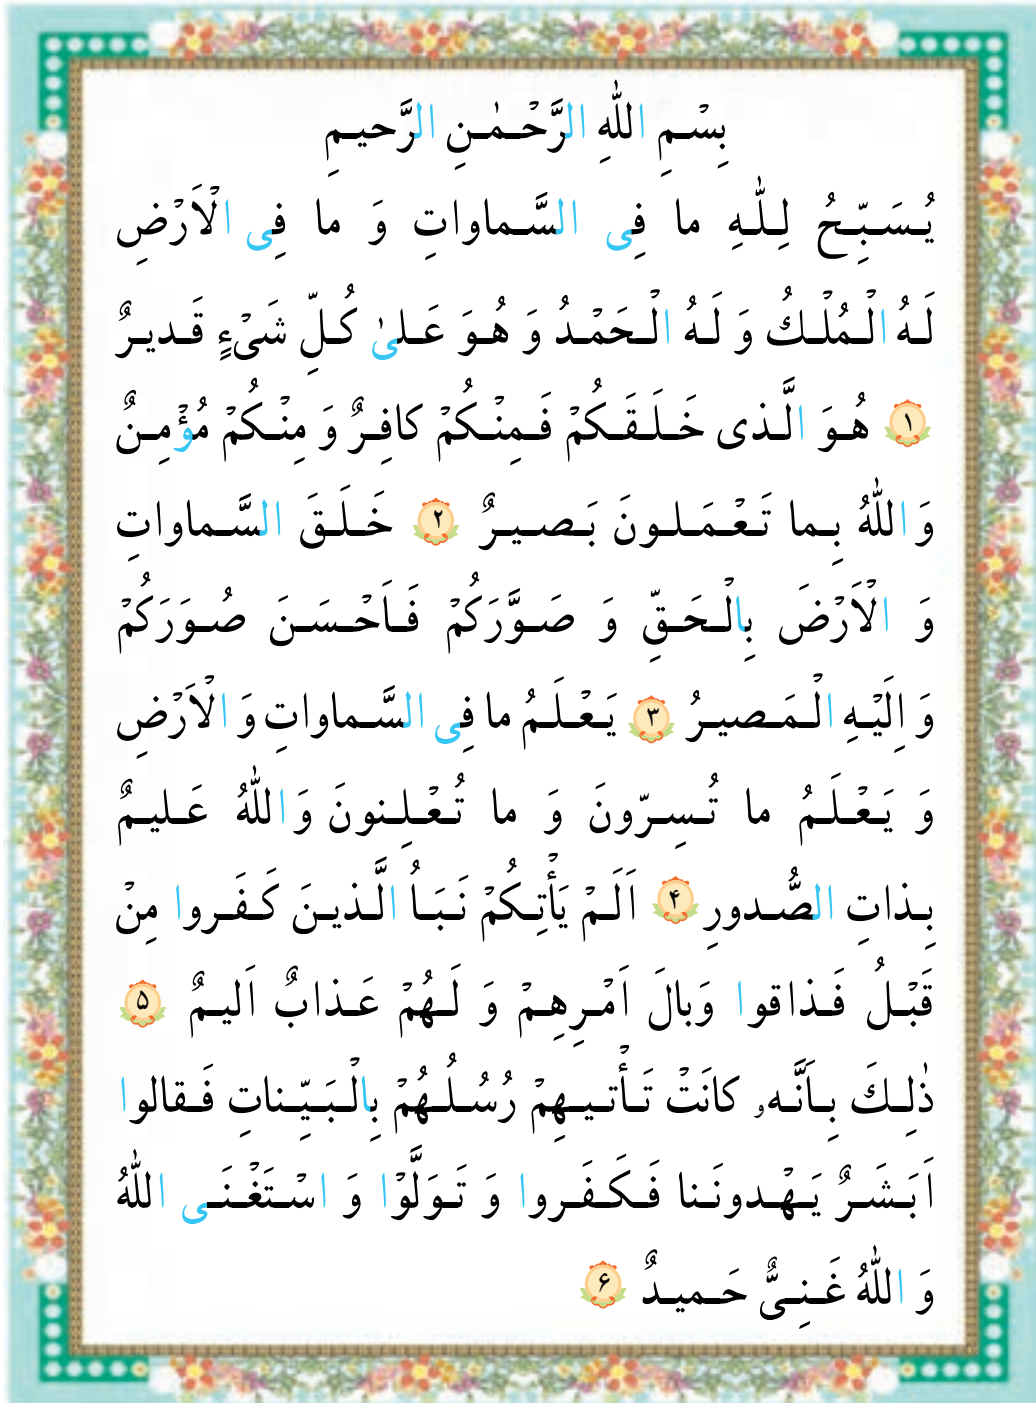 بِسْمِ اللّٰهِ الرَّحْمٰنِ الرَّحیمِ
یُسَبِّحُ لِلّٰهِ ما فِی السَّماواتِ وَ ما فِی الْاَرْضِ
لَهُ الْمُلْكُ وَ لَهُ الْحَمْدُ وَ هُوَ عَلیٰ كُلِّ شَیْءٍ قَدیرٌ
۱ هُوَ الَّذی خَلَقَكُمْ فَمِنْكُمْ كافِرٌ وَ مِنْكُمْ مُؤْمِنٌ
وَ اللّٰهُ بِما تَعْمَلونَ بَصیرٌ ۲ خَلَقَ السَّماواتِ
وَ الْاَرْضَ بِالْحَقِّ وَ صَوَّرَكُمْ فَاَحْسَنَ صُوَرَكُمْ
وَ اِلَیْهِ الْمَصیرُ ۳ یَعْلَمُ ما فِی السَّماواتِ وَ الْاَرْضِ
وَ یَعْلَمُ ما تُسِرّونَ وَ ما تُعْلِنونَ وَ اللّٰهُ عَلیمٌ
بِذاتِ الصُّدورِ ۴ اَلَمْ یَأْتِكُمْ نَبَاُ الَّذینَ كَفَروا مِنْ
قَبْلُ فَذاقوا وَبالَ اَمْرِهِمْ وَ لَهُمْ عَذابٌ اَلیمٌ ۵
ذٰلِكَ بِاَنَّهۥ كانَتْ تَأْتیهِمْ رُسُلُهُمْ بِالْبَیِّناتِ فَقالوا
اَبَشَرٌ یَهْدونَنا فَكَفَروا وَ تَوَلَّوْا وَ اسْتَغْنَی اللّٰهُ
وَ اللّٰهُ غَنِیٌّ حَمیدٌ ۶